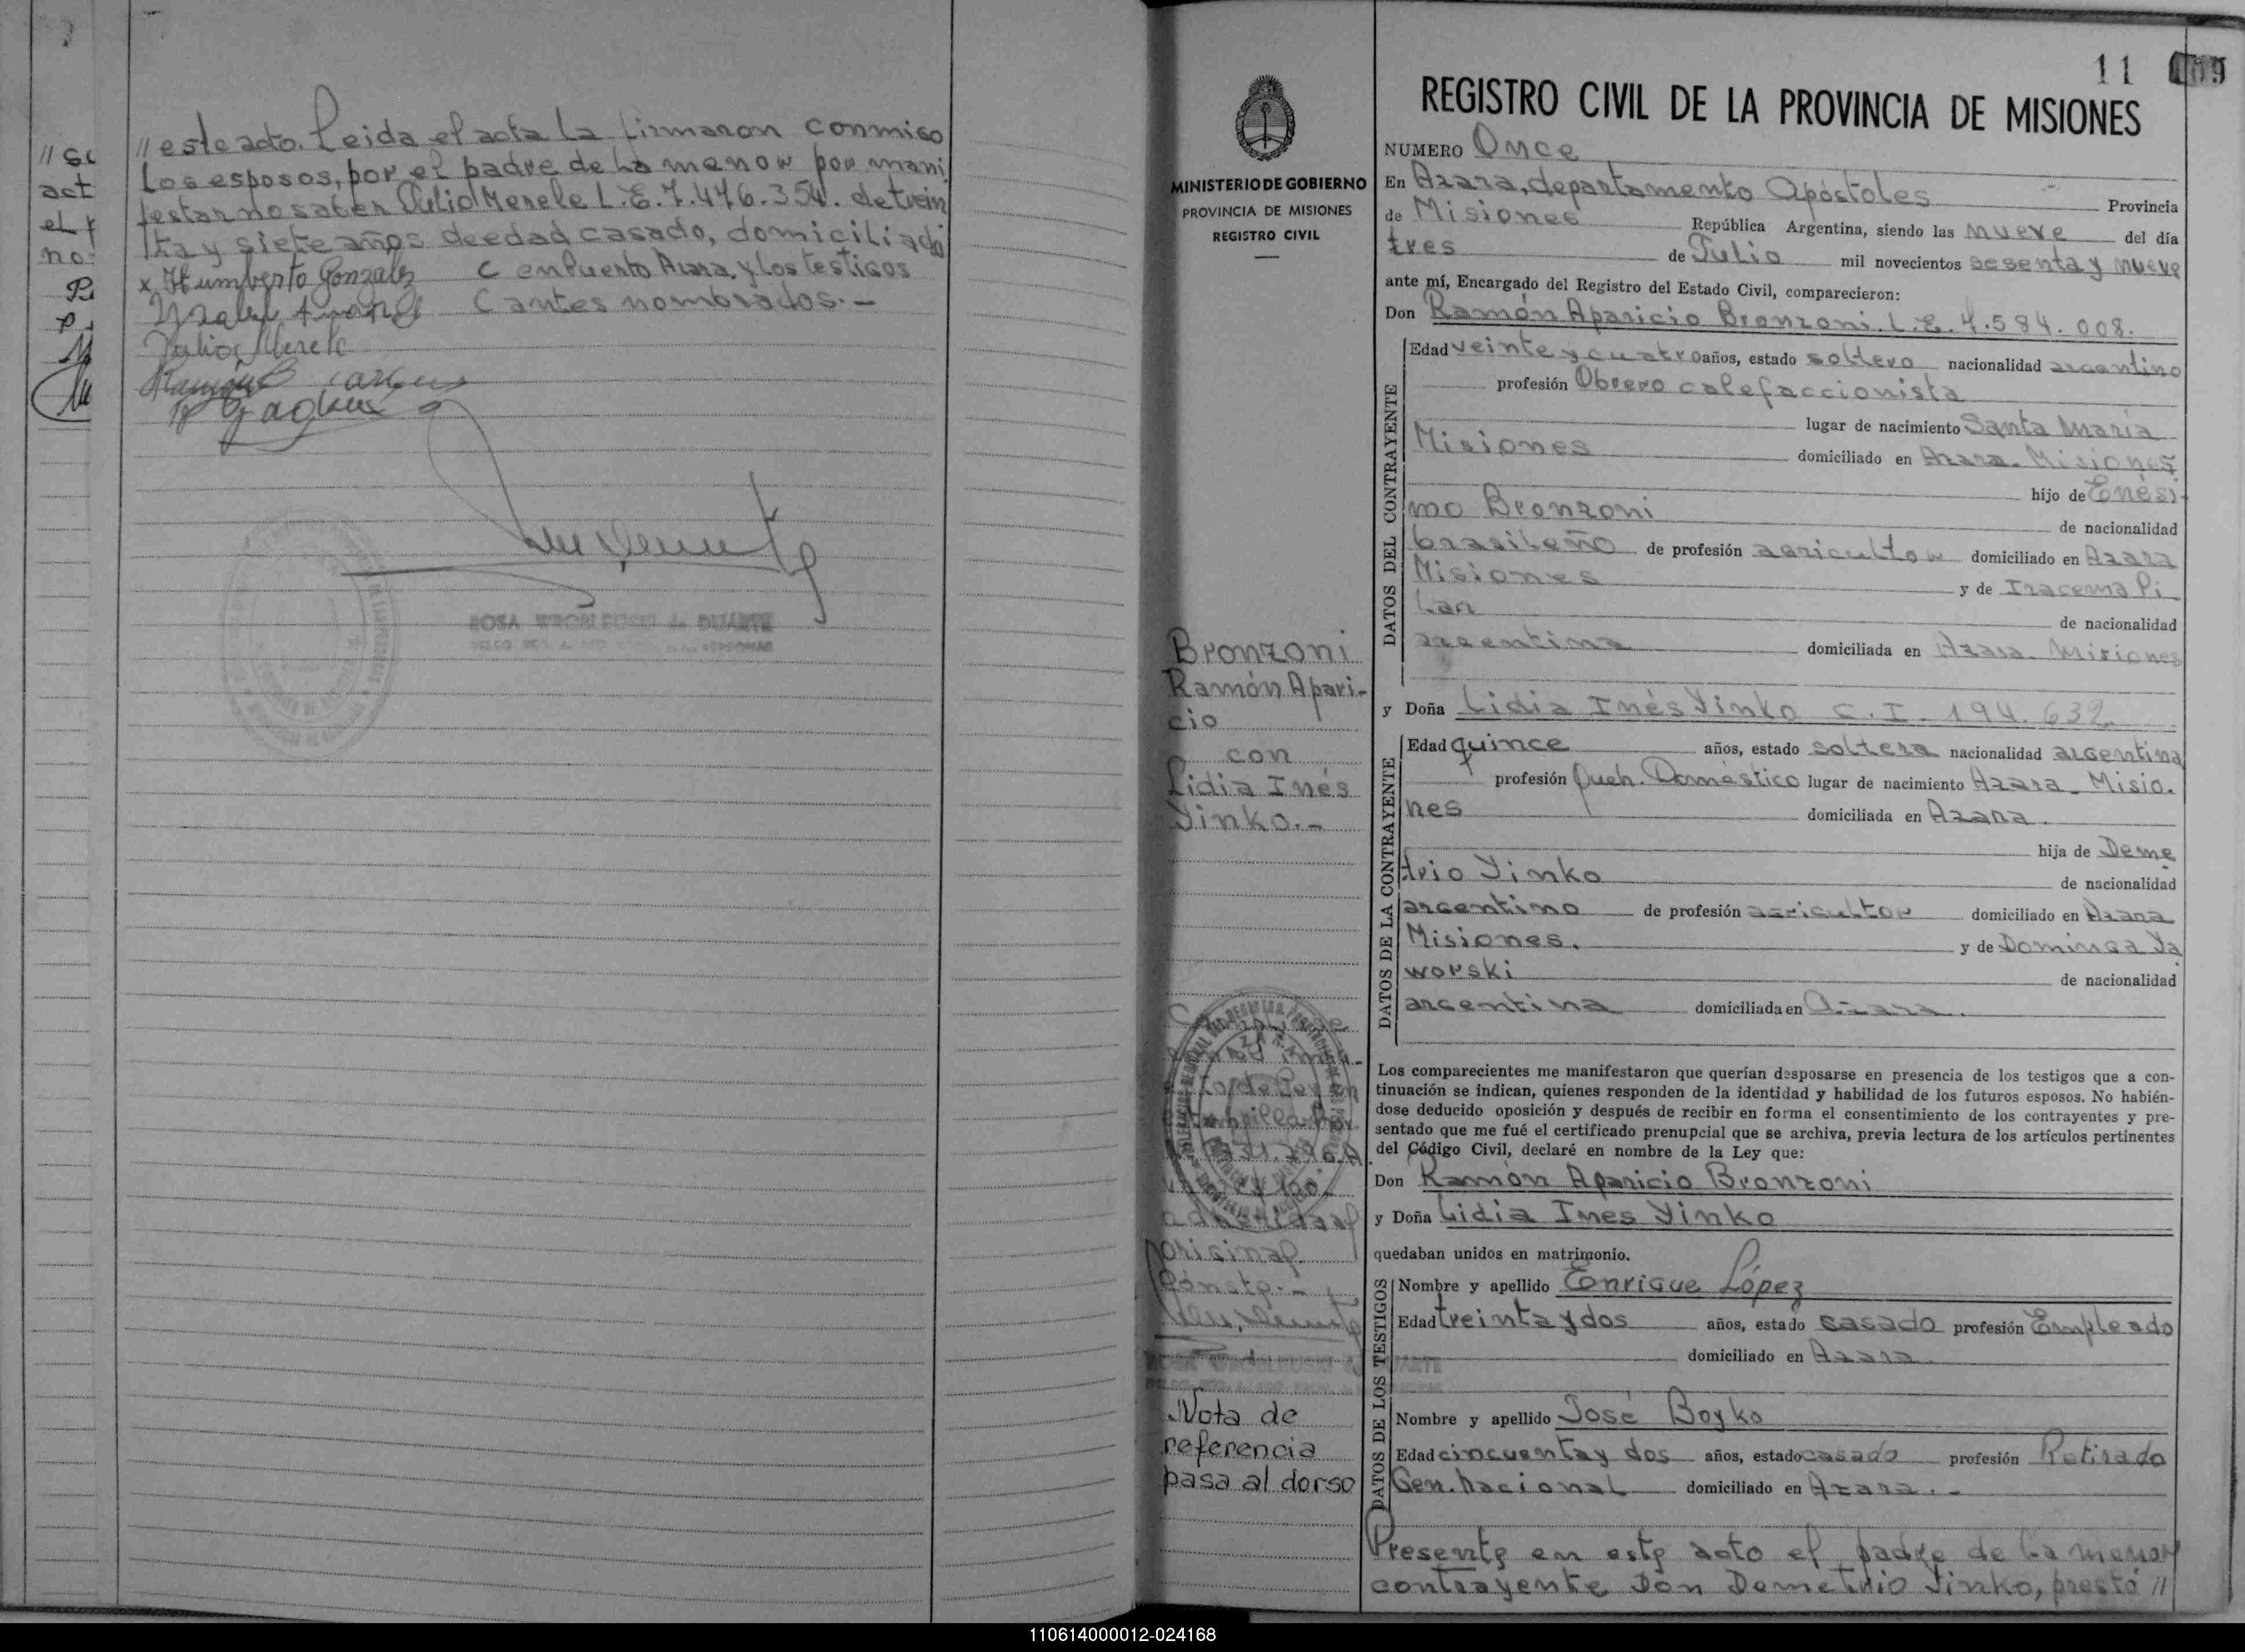 // este acto. Leida el acta la firmaron conmigo
los esposos, por el padre de la menor por mani
festar no saber Julio Merele L.E. 7.476.354. de trein
ta y siete años de edad casado, domiciliado
x Humberto Gonzalez C en Puerto Azara y los testigos
C antes nombrados.-
Julio Merele
ROSA WROBLEUSKI de DUARTE
11 109
REGISTRO CIVIL DE LA PROVINCIA DE MISIONES
MINISTERIO DE GOBIERNO
PROVINCIA DE MISIONES
REGISTRO CIVIL
NUMERO Once
En Azara, departamento Apóstoles Provincia
de Misiones República Argentina, siendo las nueve del día
tres de Julio mil novecientos sesenta y nueve
ante mí, Encargado del Registro del Estado Civil, comparecieron:
Don Ramón Aparicio Bronzoni. L.E. 7.584.008.
DATOS DEL CONTRAYENTE
Edad veinte y cuatro años, estado soltero nacionalidad argentino
profesión Obrero calefaccionista
lugar de nacimiento Santa María
Misiones domiciliado en Azara. Misiones
hijo de Enési-
mo Bronzoni de nacionalidad
brasileño de profesión agricultor domiciliado en Azara
Misiones y de Iracema Pi-
lar de nacionalidad
argentina domiciliada en Azara. Misiones
Bronzoni
Ramón Apari-
cio
con
Lidia Inés
Yinko.-
y Doña Lidia Inés Yinko C.I. 194.632.
DATOS DE LA CONTRAYENTE
Edad quince años, estado soltera nacionalidad argentina
profesión Queh. Doméstico lugar de nacimiento Azara. Misio.
nes domiciliada en Azara.
hija de Deme
trio Yinko de nacionalidad
argentino de profesión agricultor domiciliado en Azara
Misiones. y de Dominga Ya
worski de nacionalidad
argentina domiciliada en Azara.
Los comparecientes me manifestaron que querían desposarse en presencia de los testigos que a con-
tinuación se indican, quienes responden de la identidad y habilidad de los futuros esposos. No habién-
dose deducido oposición y después de recibir en forma el consentimiento de los contrayentes y pre-
sentado que me fué el certificado prenupcial que se archiva, previa lectura de los artículos pertinentes
del Código Civil, declaré en nombre de la Ley que:
Don Ramón Aparicio Bronzoni
y Doña Lidia Ines Yinko
quedaban unidos en matrimonio.
original
Conste.-
DATOS DE LOS TESTIGOS
Nombre y apellido Enrique López
Edad treinta y dos años, estado casado profesión Empleado
domiciliado en Azara
Nombre y apellido José Boyko
Edad cincuenta y dos años, estado casado profesión Retirado
Gen. Nacional domiciliado en Azara.-
Nota de
referencia
pasa al dorso
Presente en este acto el padre de la menor
contrayente Don Demetrio Yinko, prestó //
110614000012-024168